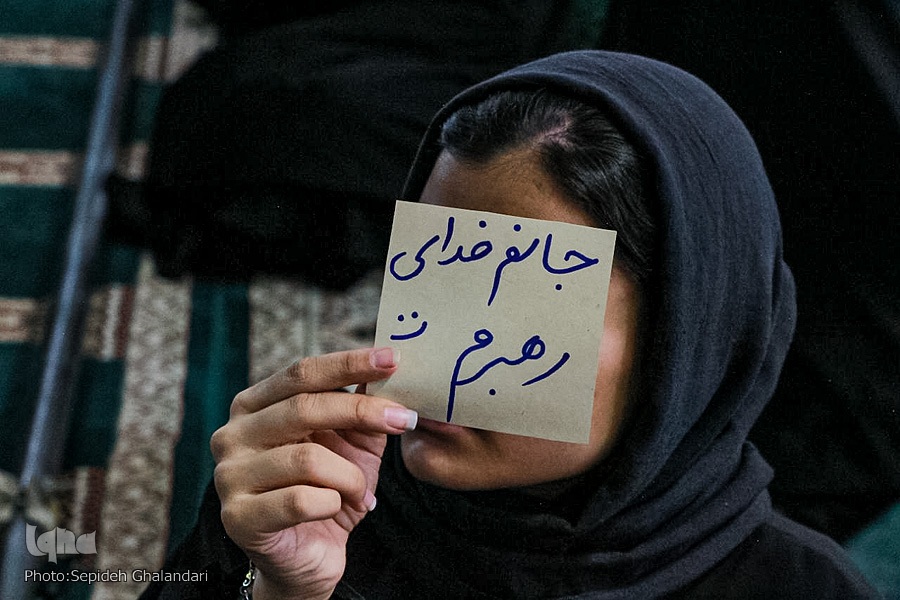 جانم فدای
رهبرم :)
Iqna
Photo:Sepideh Ghalandari